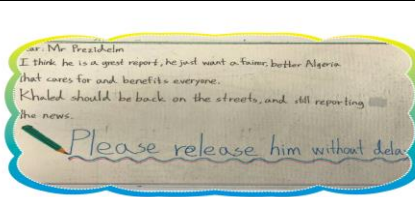 ear: Mr Prezidelm
I think he is a great report, he just want a fairer, better Algeria
that cares for and benefits everyone.
Khaled should be back on the streets, and still reporting
the news.
Please release him without dela